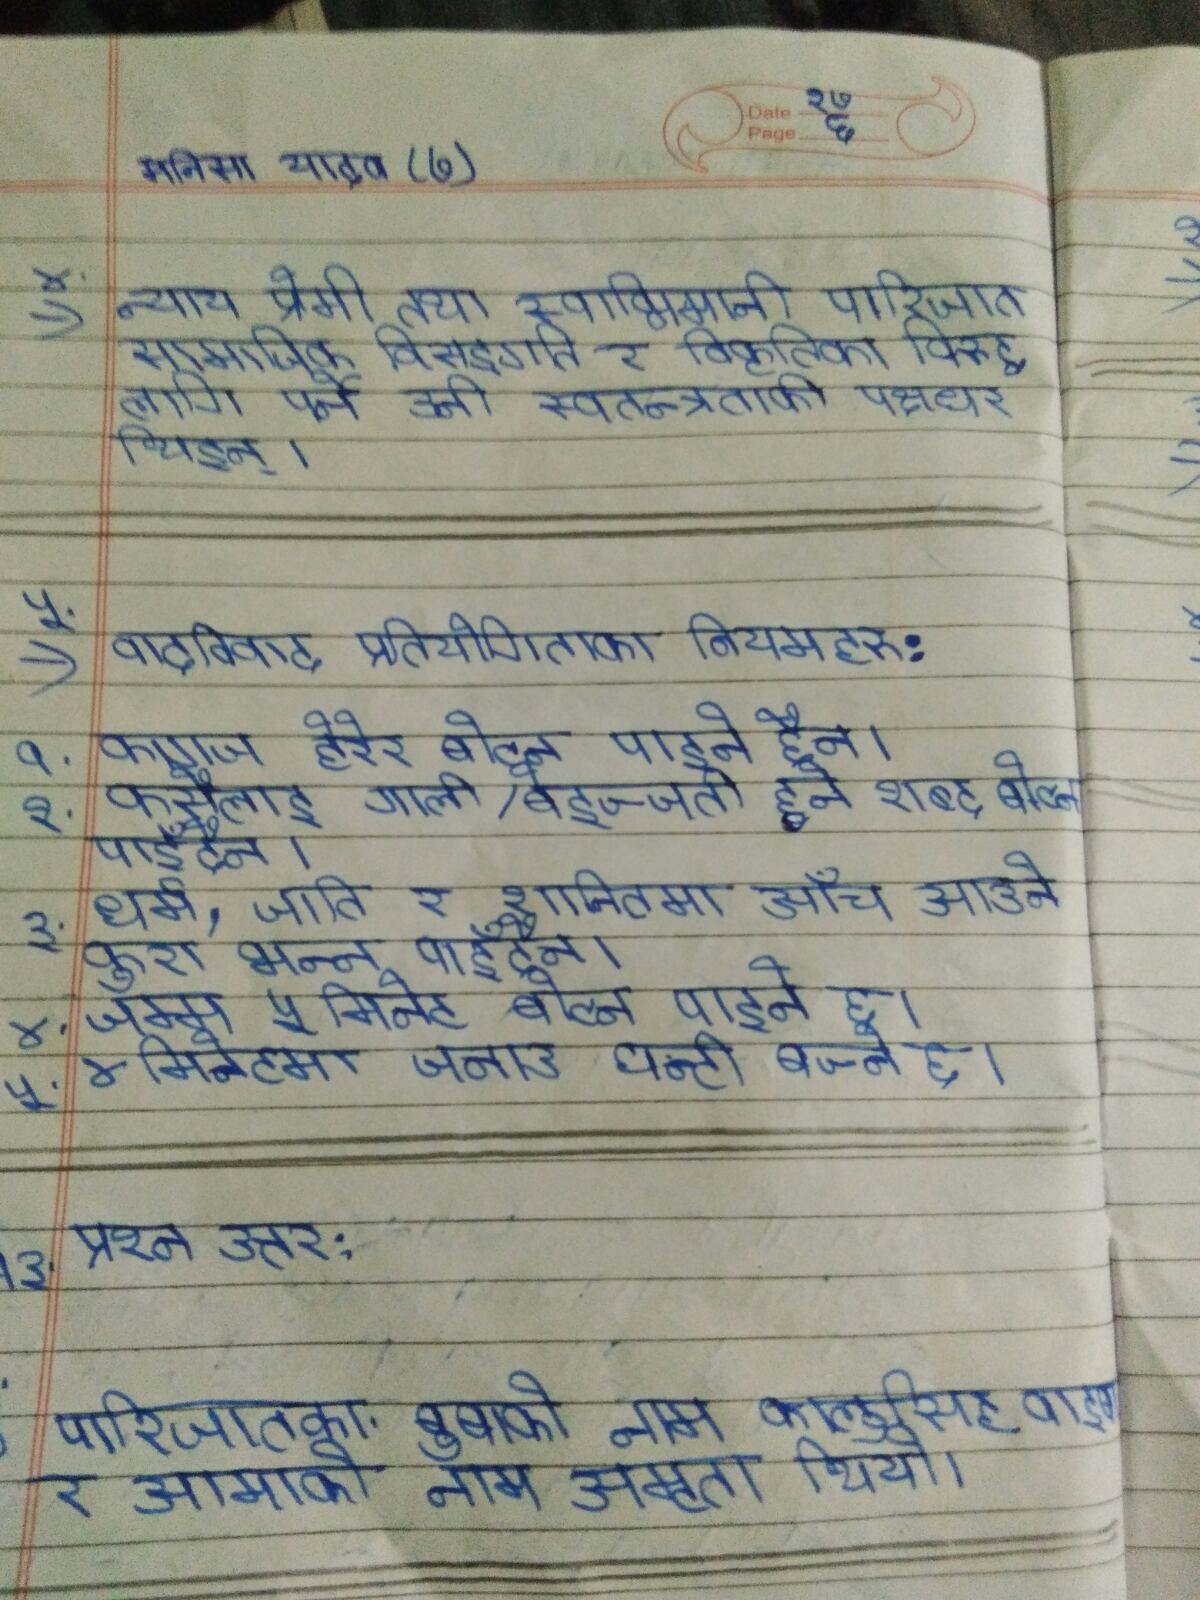 Date २७
Page ६
मनिसा यादव (७)
४.
⇒ न्याय प्रेमी तथा स्वाभिमानी पारिजात
सामाजिक विसङ्गति र विकृतिका विरुद्ध
लागि पर्ने उनी स्वतन्त्रताकी पक्षधर
थिइन् ।
५.
⇒ वादविवाद प्रतियोगिताका नियमहरू:
१. कागज हेरेर बोल्न पाइने छैन ।
२. कसैलाइ गाली/बेइज्जती हुने शब्द बोल्न
पाइँदैन ।
३. धर्म, जाति र शान्तिमा आँच आउने
कुरा भन्न पाइँदैन ।
४. जम्मा ५ मिनेट बोल्न पाइने छ ।
५. ४ मिनेटमा जनाउ घन्टी बज्ने छ ।
१३. प्रश्न उत्तर:
पारिजातका बुबाको नाम
र आमाको नाम अमृता थियो ।